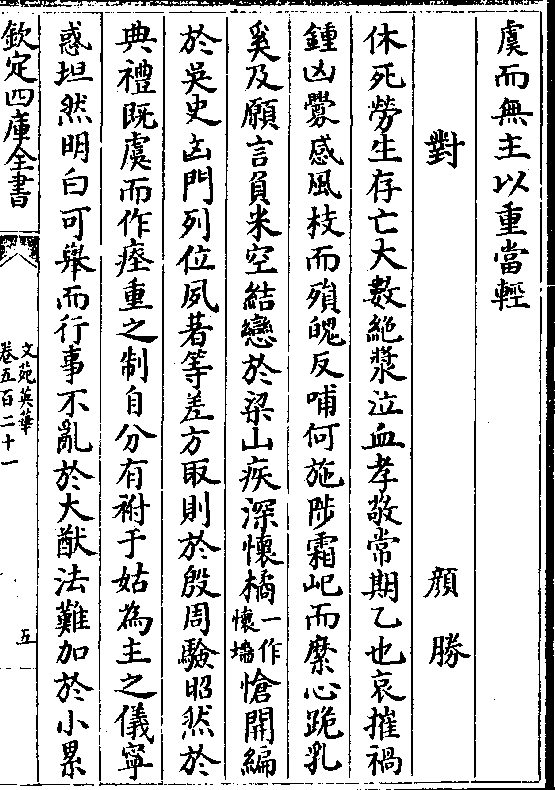 虞而無主以重當輕
對　顔勝
休死勞生存亡大數絶漿泣血孝敬常期乙也哀摧禍
鍾凶釁感風枝而殞魄反哺何施陟霜屺而縻心跪乳
奚及願言負米空結戀於梁山疾深懷橘一作懷墑愴開編
於吴史㐫門列位夙著等差方取則於殷周驗昭然於
典禮既虞而作瘞重之制自分有祔于姑為主之儀寧
惑坦然明白可舉而行事不亂於大猷法難加於小累
欽定四庫全書
文苑英華
卷五百二十一
五